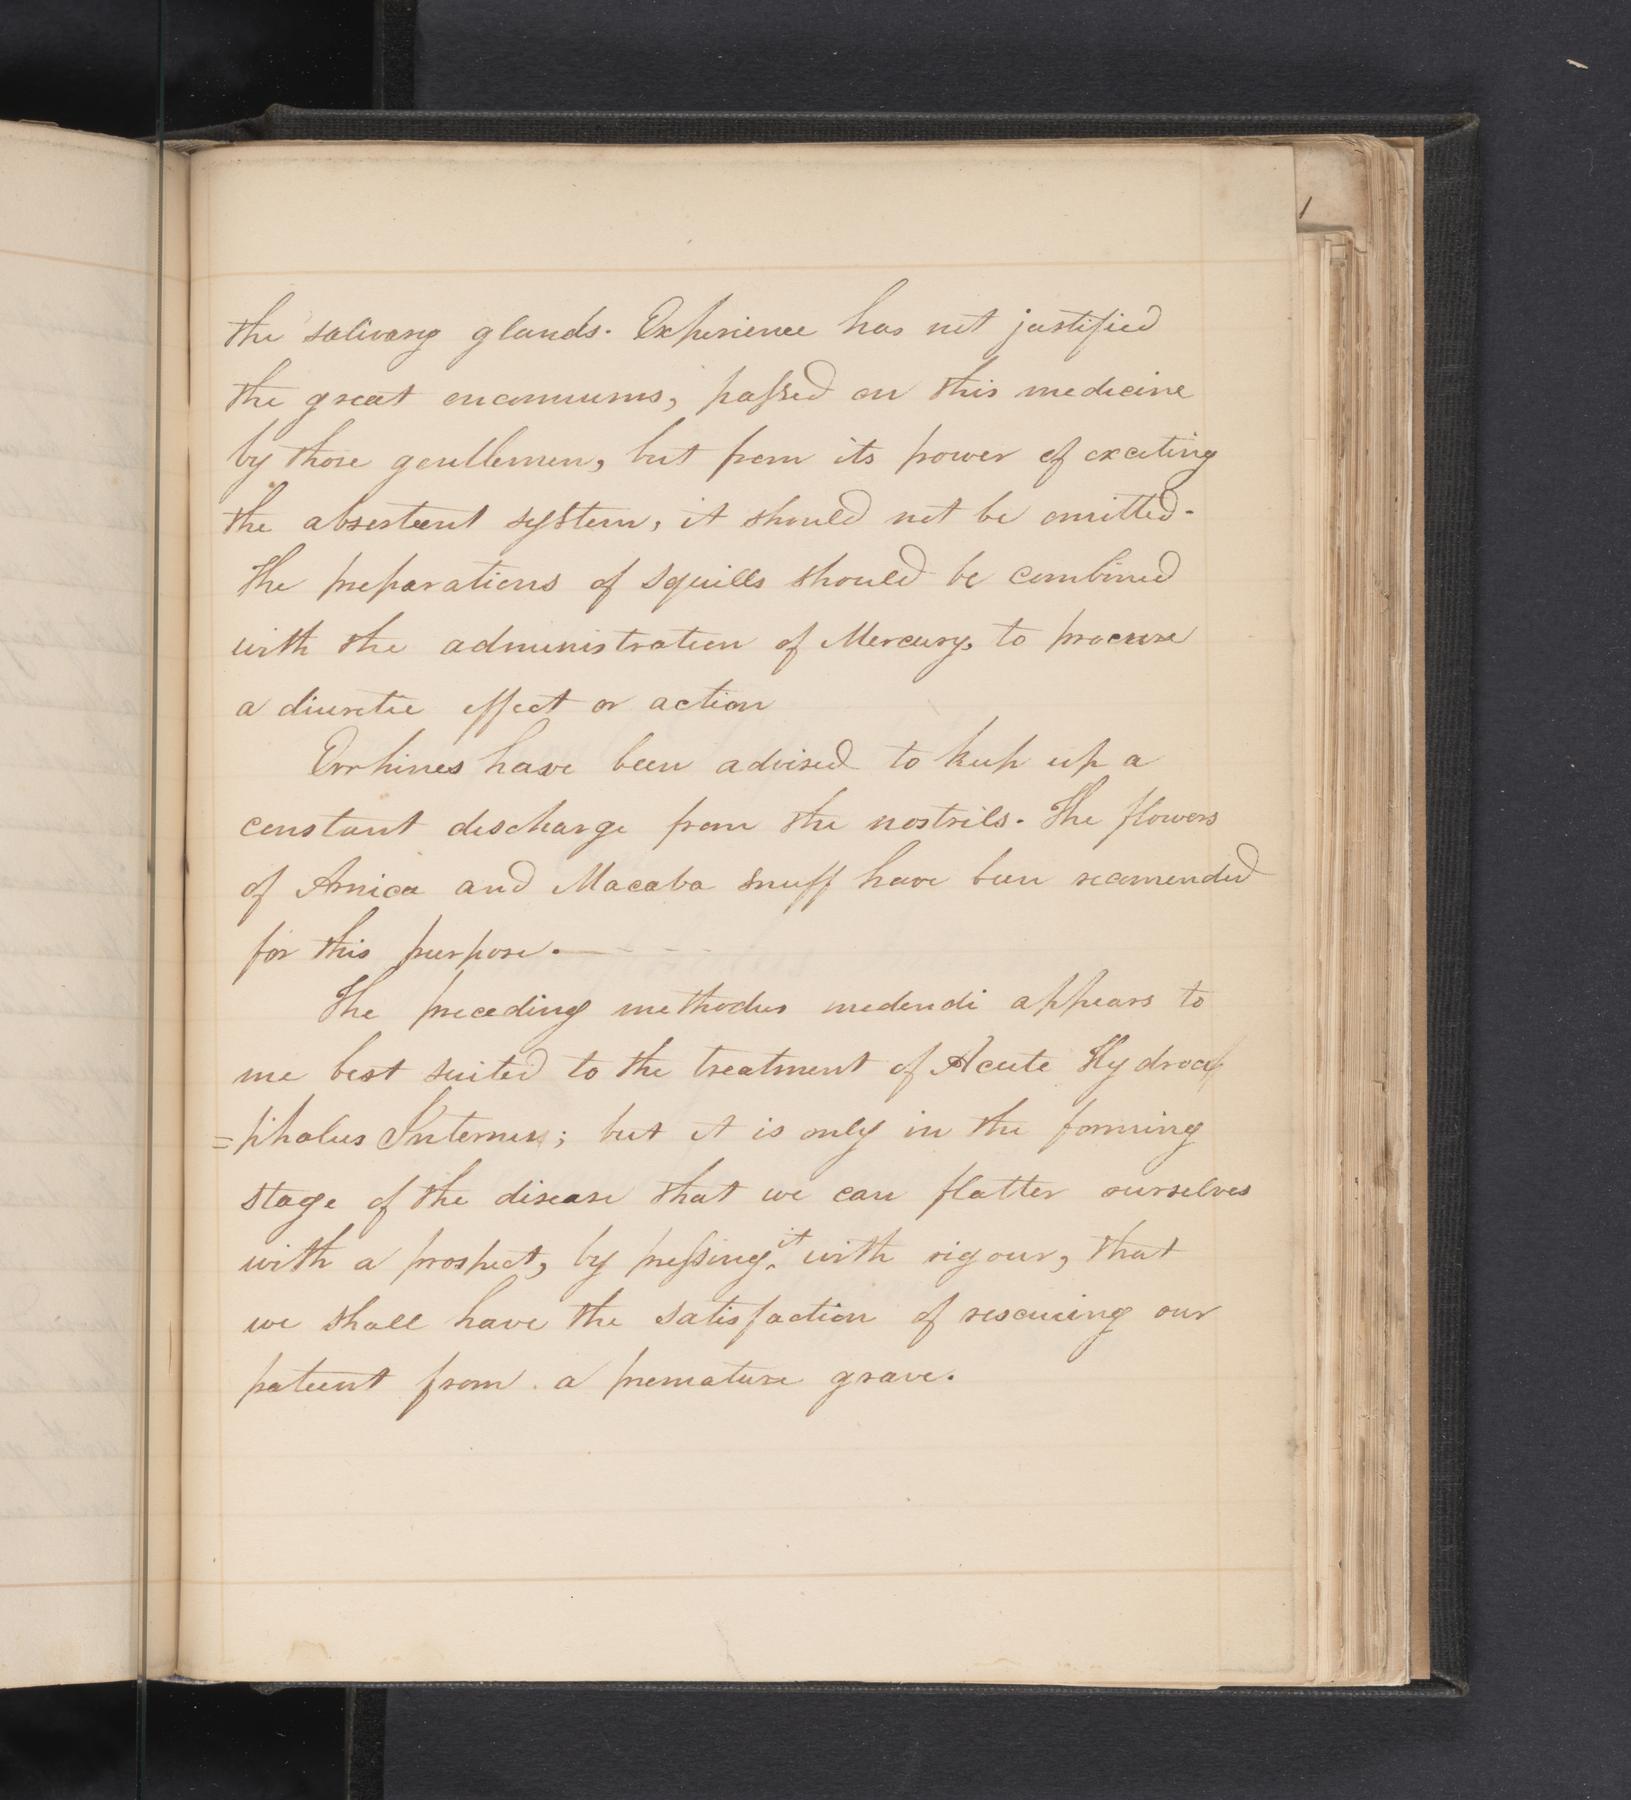 the salivary glands. Experience has not justified
the great encomiums, passed on this medicine
by those gentlemen, but from its power of exciting
the absorbent system, it should not be omitted.
The preparations of squills should be combined
with the administration of Mercury, to procure
a diuretic effect or action
Errhines have been advised to keep up a
constant discharge from the nostrils. The flowers
of Arnica and Macaba snuff have been recomended
for this purpose.
The preceding methodus medendi appears to
me best suited to the treatment of Acute Hydroce
=phalus Internus; but it is only in the forming
stage of the disease that we can flatter ourselves
with a prospect, by pressing it with rigour, that
we shall have the satisfaction of rescuing our
patient from a premature grave.